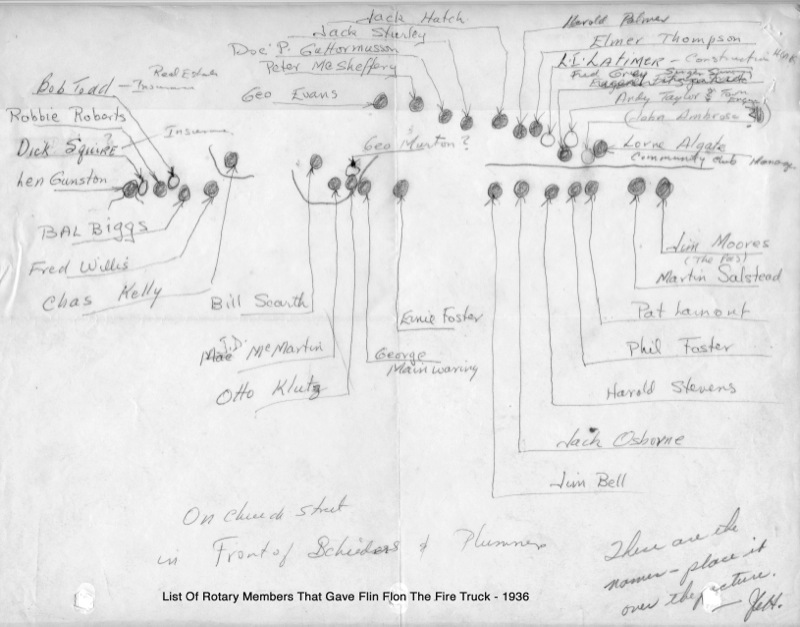 Jack Hatch
Jack Sturley
Doc P. Guttormusson
Peter McSheffery
Geo Evans
Harold Palmer
Elmer Thompson
L.I. LATIMER - Construction
Fred Grey
Andy Taylor & Town
(John Ambrose?)
Lorne Algate
Community club Manager
Bob Todd - Real Estate
Insurance
Robbie Roberts
Dick Squire? Insurance
Len Gunston
BAL Biggs
Fred Willis
Chas Kelly
Geo Murton?
Bill Scarth
J.D.
Mac McMartin
Otto Klutz
George
Mainwaring
Ernie Foster
Jim Moores
(The Pas)
Martin Salstead
Pat Lamont
Phil Foster
Harold Stevens
Jack Osborne
Jim Bell
On Church Street
in Front of Schieders & Plummer
These are the
names - place it
over the picture.
List Of Rotary Members That Gave Flin Flon The Fire Truck - 1936